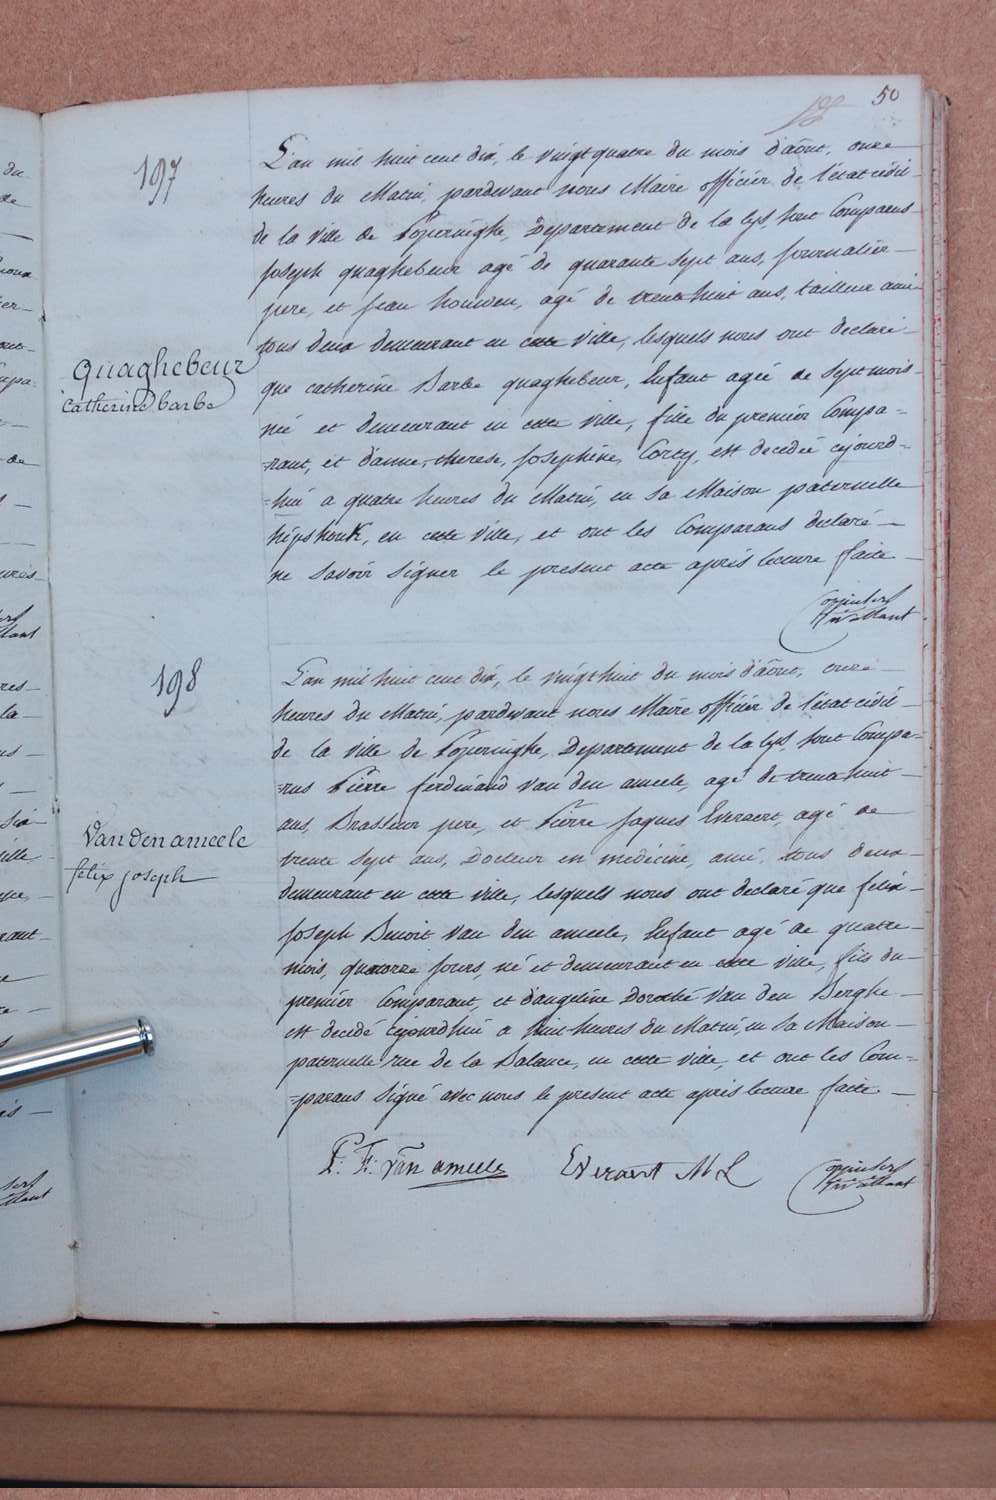 50
197
L'an mil huit cent dix, le vingt quatre du mois d'aôut, onze
heures du Matin, pardevant nous Maire officier de l'état civil
de la ville de Poperinghe, Departement de la lys, sont Comparus
Joseph quaghebeur agé de quarante sept ans, journalier
pere, et jean houwen, agé de trente huit ans, tailleur ami
tous deux demeurant en cette ville, lesquels nous ont declaré
quaghebeur
Catherine barbe
que catherine Barbe quaghebeur, Enfant agée de sept mois
né et demeurant en cette ville, fille du premier Compa=
=rant, et d'anne, therese, josephine, Corty, est decedée cejourd=
=hui a quatre heures du Matin, en sa Maison paternelle
hipshouk, en cette ville, et ont les Comparans declaré
ne savoir signer le present acte après lecture faite
198
L'an mil huit cent dix, le vingt huit du mois d'aôut, onze
heures du Matin, pardevant nous Maire officier de l'état civil
de la ville de Poperinghe, Departement de la lys, sont Compa=
=rus Pierre ferdinand van den ameele, agé de trente huit
ans, Brasseur pere, et Pierre jaques Everaert, agé de
Van Den ameele
félix joseph
trente sept ans, Docteur en medécine, ami, tous deux
demeurant en cette ville, lesquels nous ont declaré que felix
joseph Benoit van den ameele, Enfant agé de quatre
mois, quatorze jours, né et demeurant en cette ville, fils du
premier Comparant, et d'angeline Dorothé Van den Berghe
est decedé cejourd'hui a huit heures du Matin, en sa Maison
paternelle rue de la Balance, en cette ville, et ont les Com=
=parans signé avec nous le present acte après lecture faite
P: F: Van ameele Everaert M L